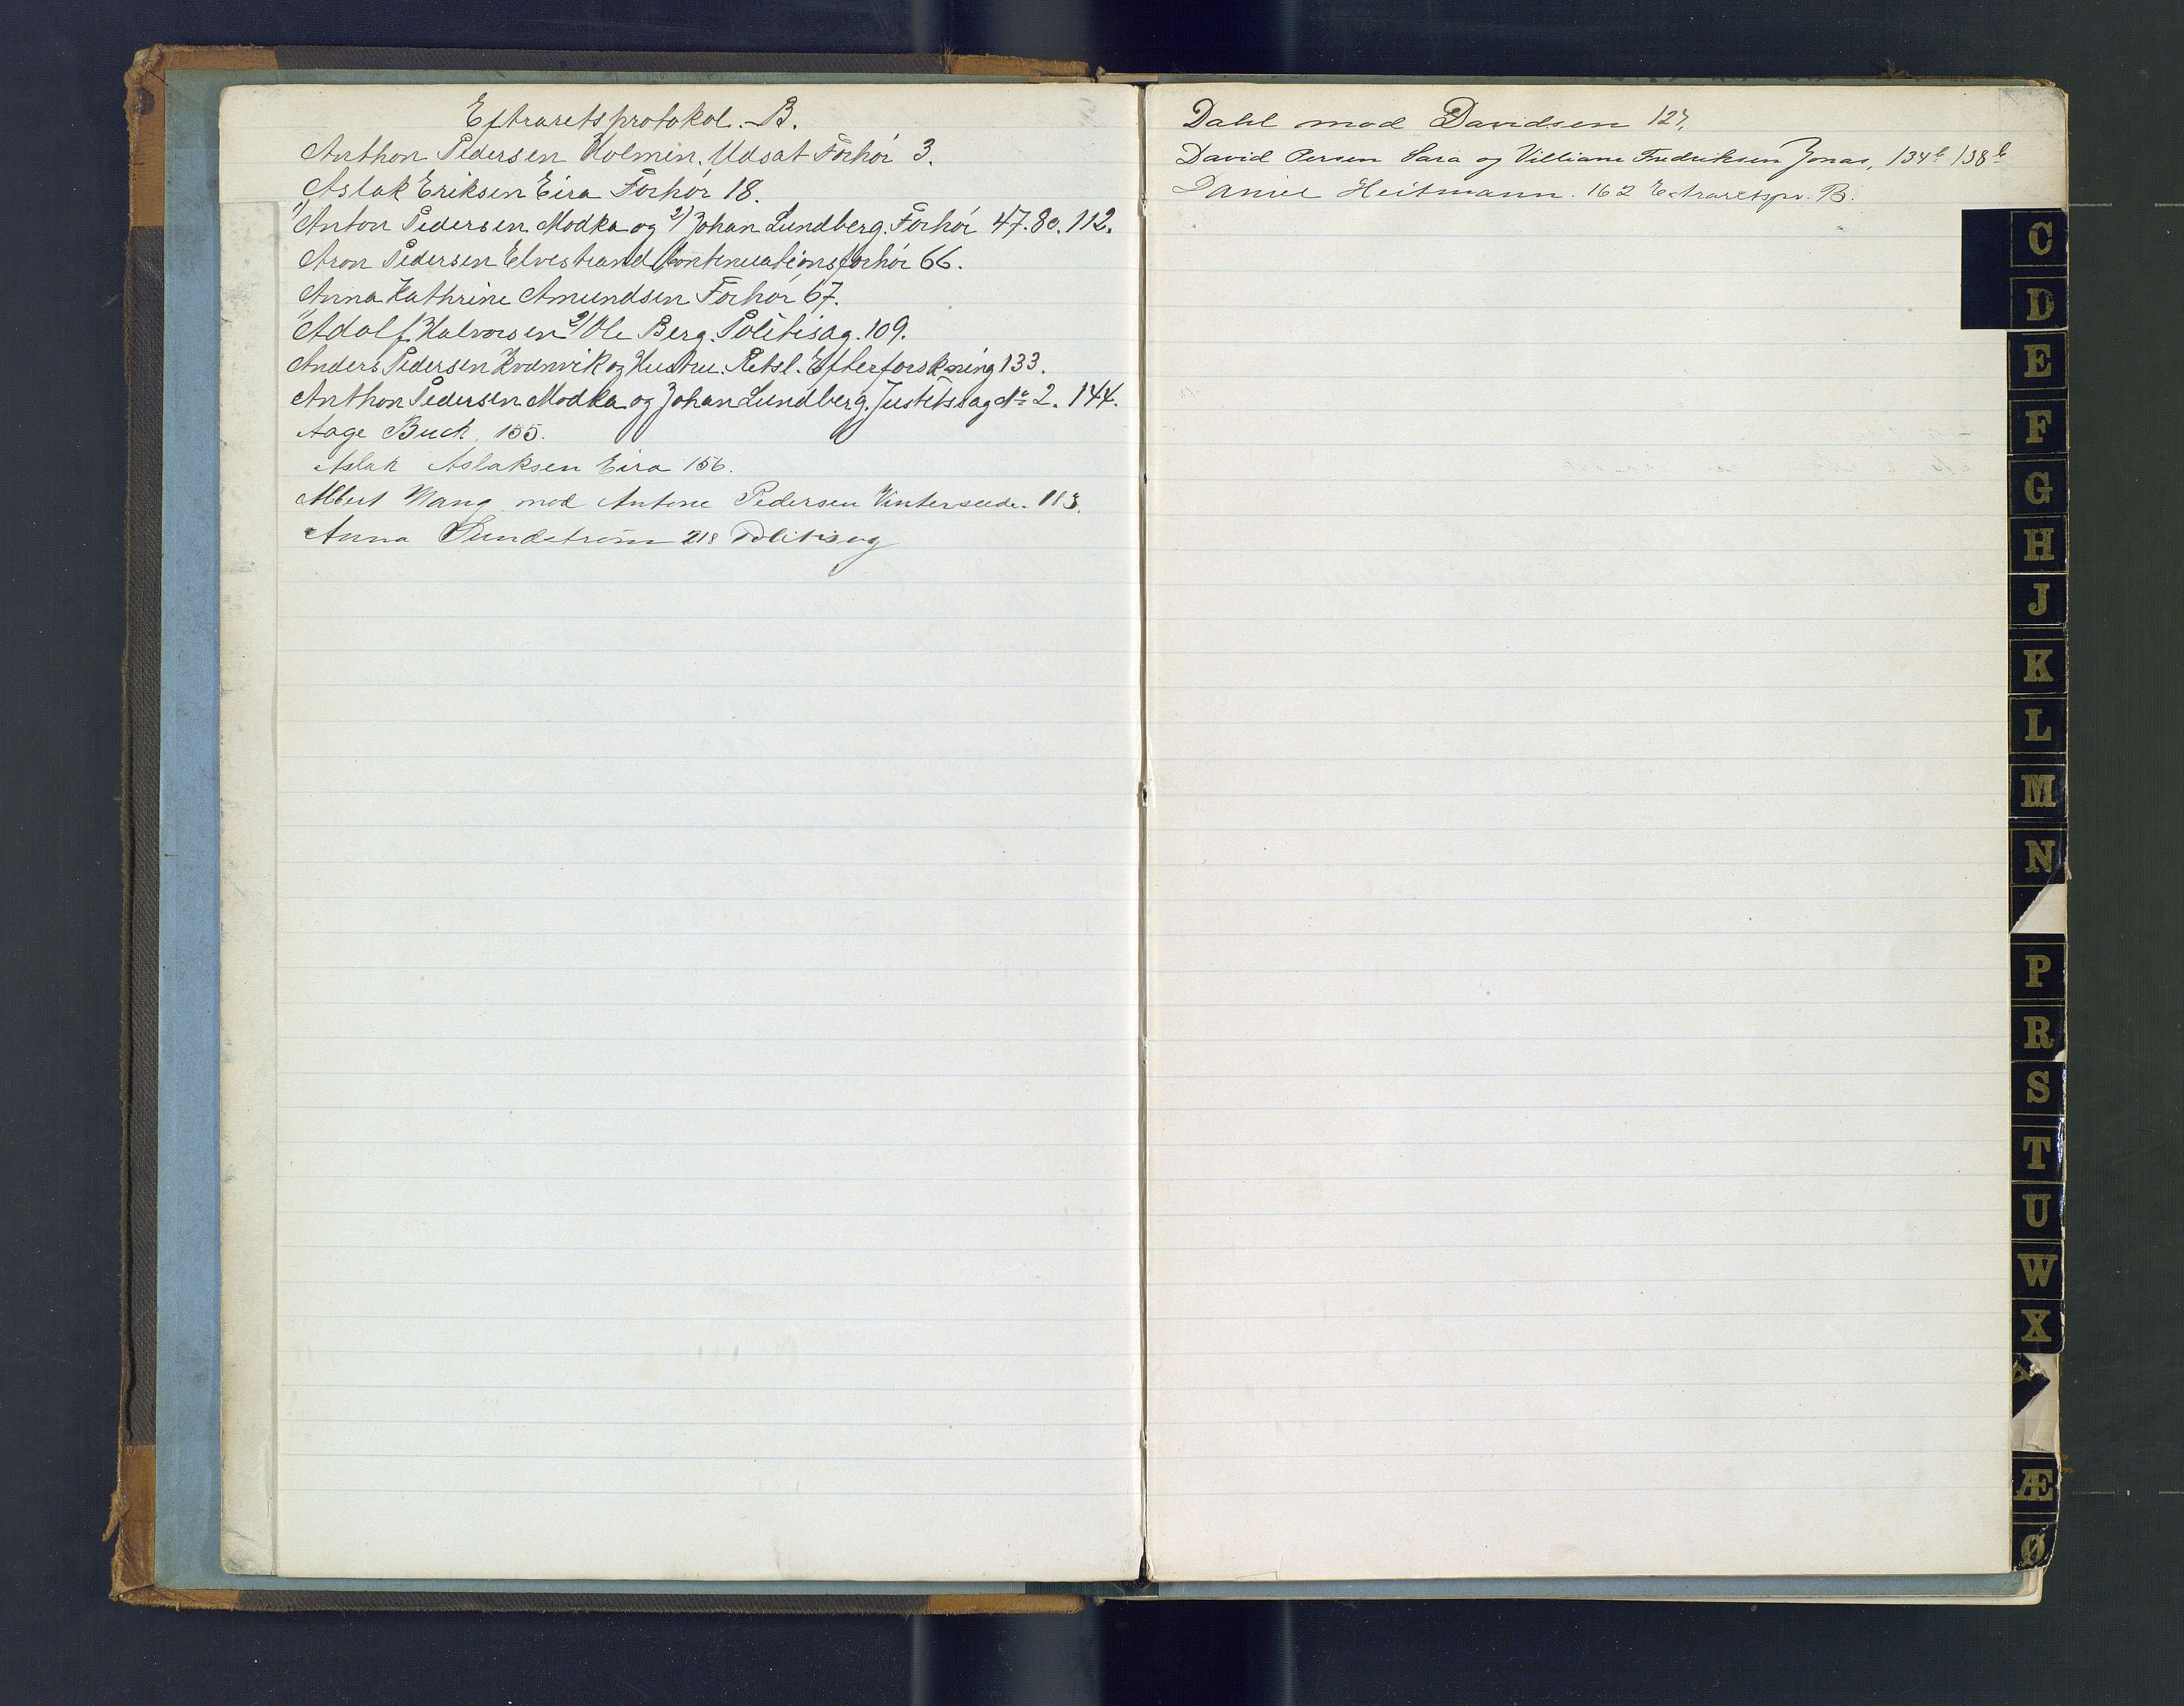 Extraretsprotokol. B.
Anthon Pedersen Holmen. Udsat Forhör 3.
Aslak Eriksen Eira Forhör 18.
1) Anton Pedersen Modka og 2/ Johan Lundberg. Forhör 47. 80. 112.
Aron Pedersen Elvestrand Continuationsforhör 66.
Anna Kathrine Amundsen Forhör 67.
1) Adolf Halvorsen 2/ Ole Berg. Politisag. 109.
Anders Pedersen Kvænvik og Hustru. Retsl. Efterforskning 133.
Anthon Pedersen Modka og Johan Lundberg. Justitssag No 2. 144.
Aage Buch. 155.
Aslak Aslaksen Eira 156.
Albert Wang mod Antone Pedersen 183.
Anna Sundström 218 Politisag
Dahl mod Davidsen 127,
David Persen Sara og Villiam Fredriksen Jonas, 134b 138b
Daniel Heitmann. 162 Extraretspr. B.
C
D
E
F
G
H
J
K
L
M
N
P
R
S
T
U
W
X
Y
Æ
Ø